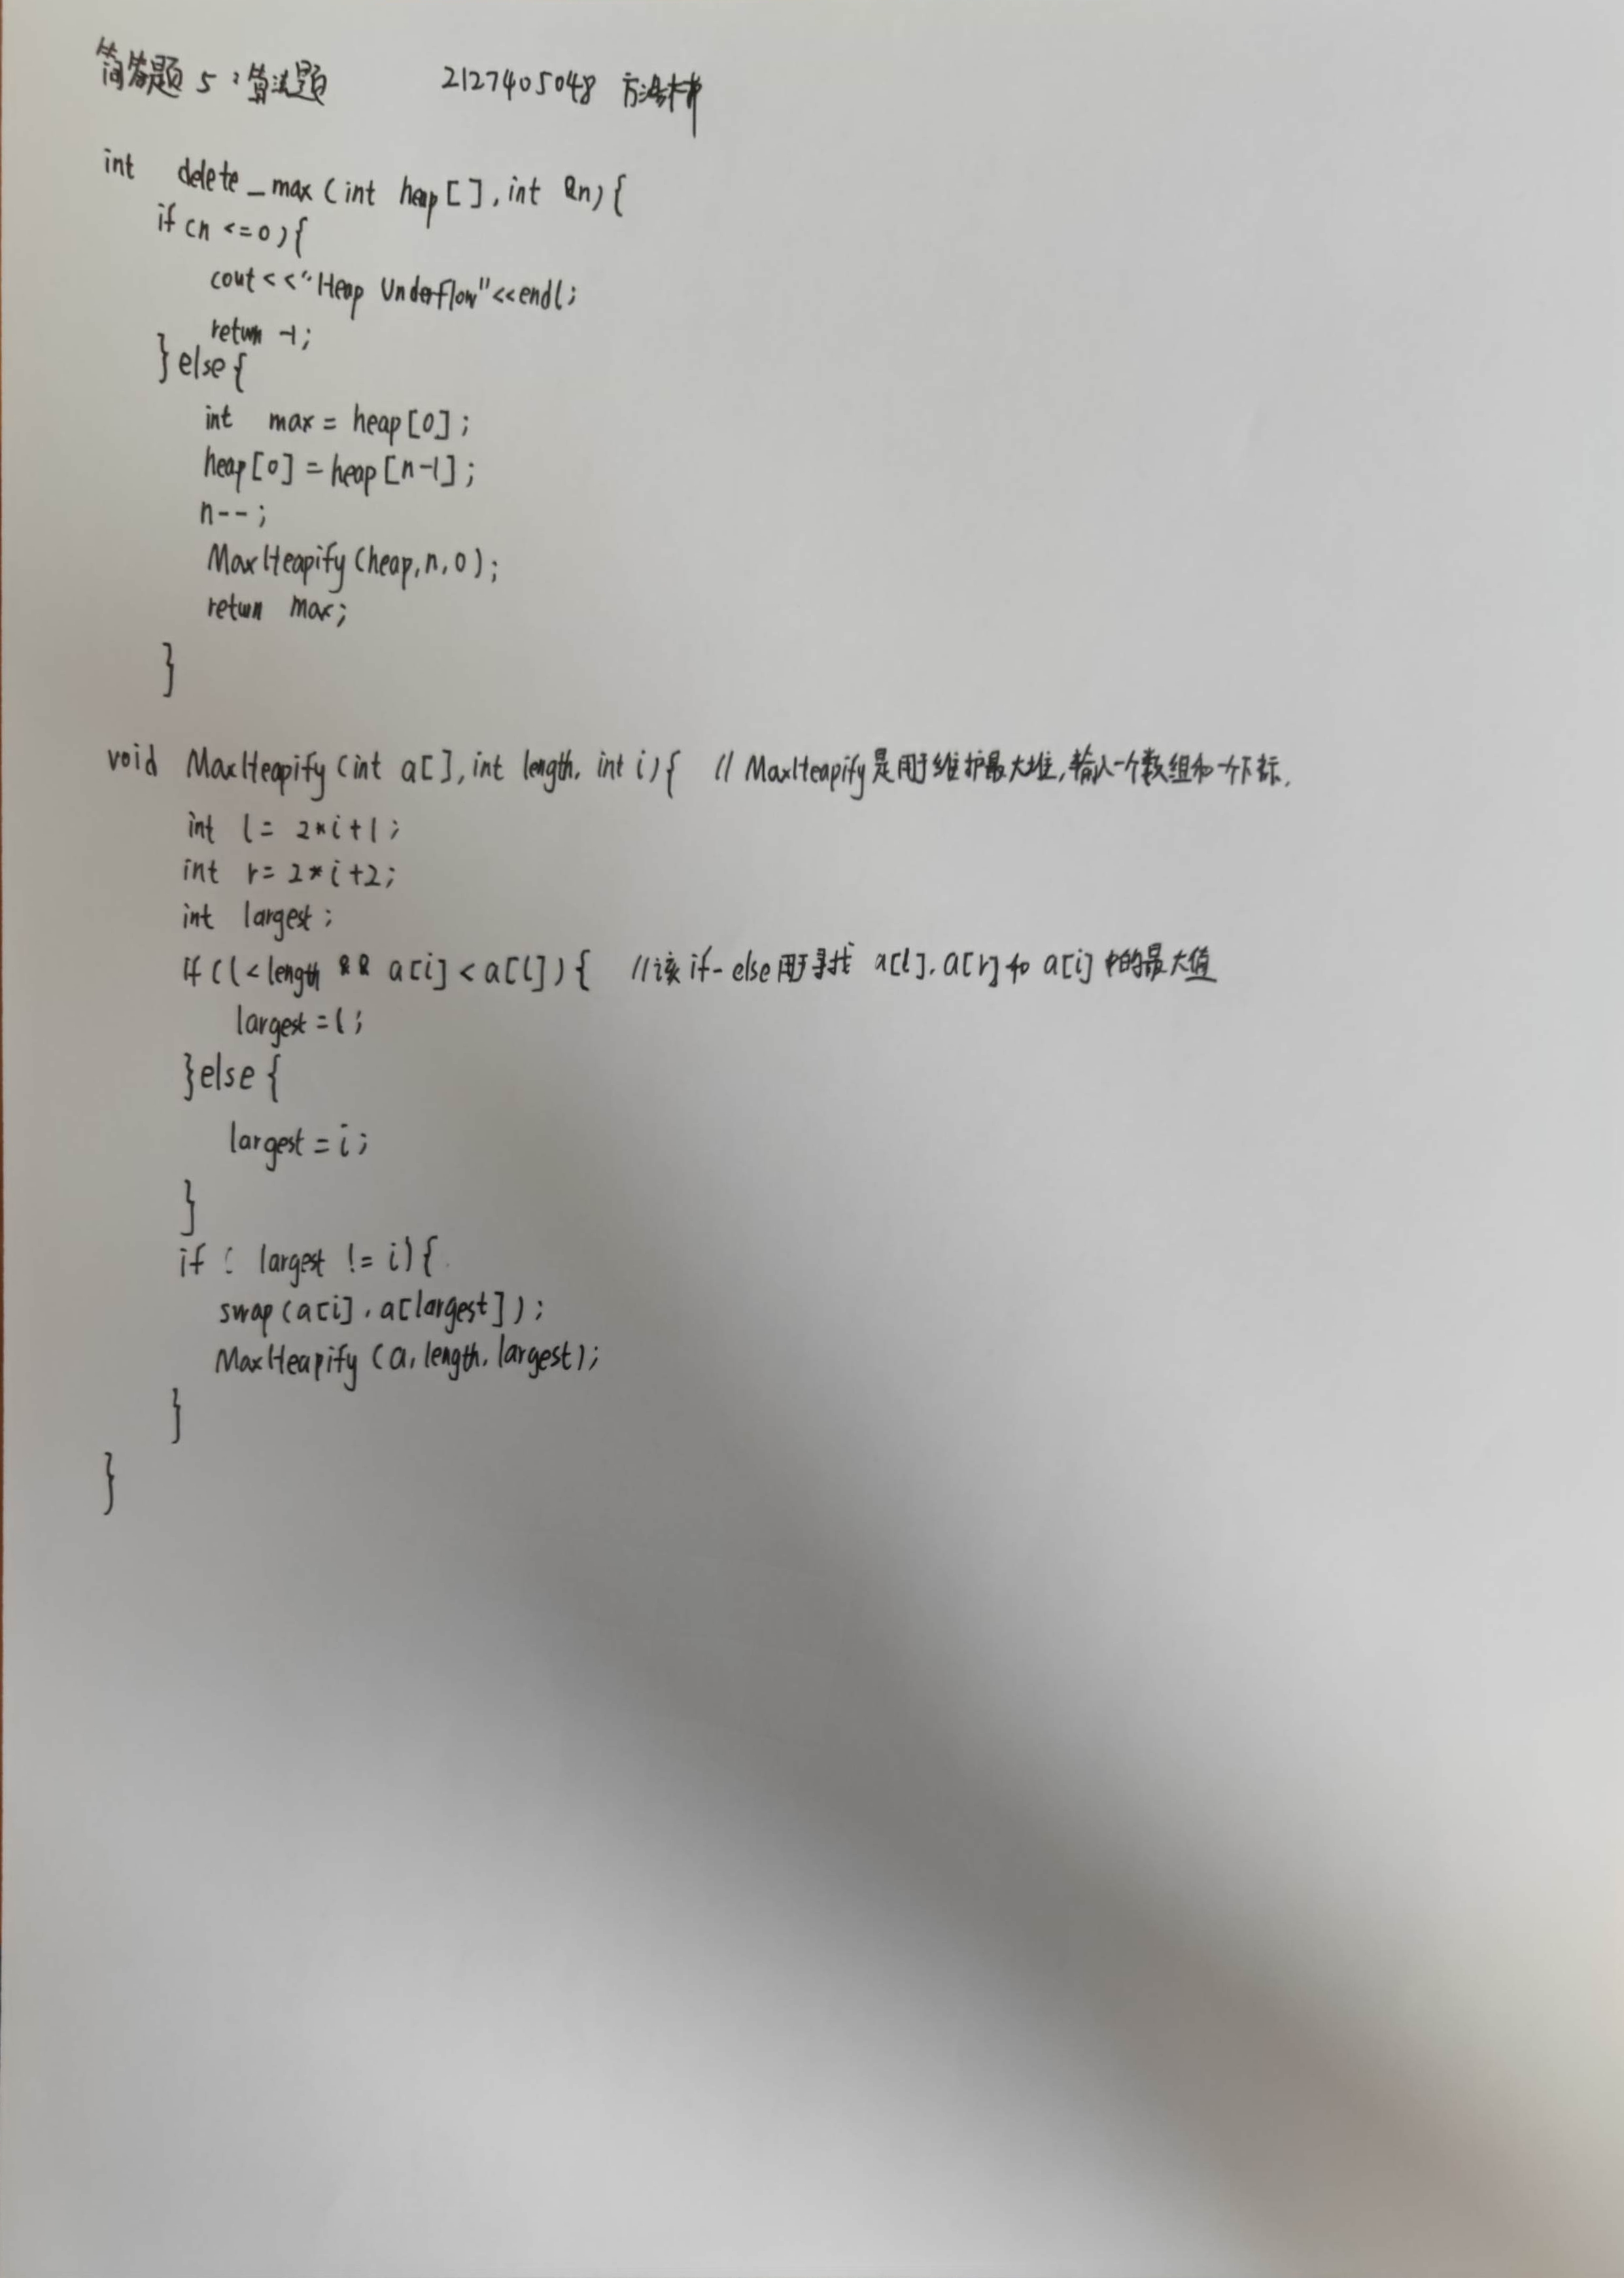 简答题 5:算法题 2127405048 方
int delete_max(int heap[], int &n){
if(n <=0){
cout<<"Heap Underflow"<<endl;
return -1;
}else{
int max = heap[0];
heap[0] = heap[n-1];
n--;
MaxHeapify(heap,n,0);
return max;
}
void MaxHeapify(int a[], int length, int i){ // MaxHeapify是用于维护最大堆,输入一个数组和一个下标.
int l= 2*i+1;
int r= 2*i+2;
int largest;
if(l<length && a[i]<a[l]){ //该if-else用于寻找 a[l].a[r]和 a[i]中的最大值
largest=l;
}else{
largest=i;
}
if( largest != i){
swap(a[i],a[largest]);
MaxHeapify(a,length,largest);
}
}